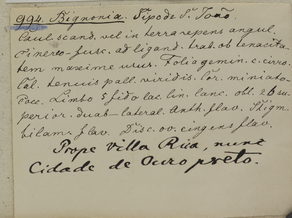 994. Bignonia. Cipo de S. João
Caul. scand. vel in terra repens angul.
cinereo-fusc. ad ligand. trab. ob tenacita-
tem maxime usus. Folia gemin. c. cirro.
Cal. tenuis pall. viridis. Cor. miniato-
coc. Limbo 5 fido lac. lin. lanc. obt. 2 su-
perior. duab. lateral. Anth. flav. Stigm.
bilam. flav. Disc. ov. cingens flav.
Prope Villa Rica, nunc
Cidade de Ouro preto.